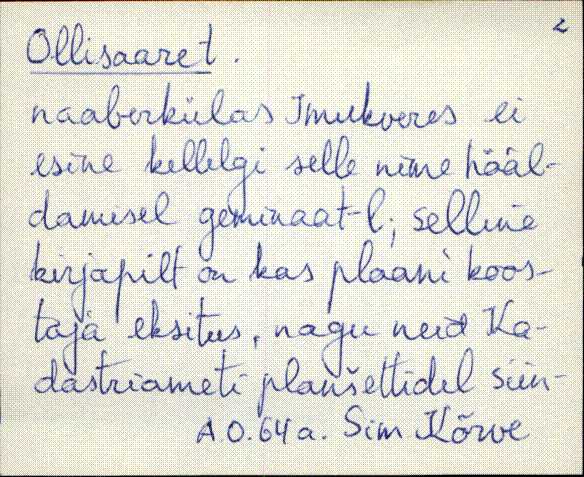 2
Ollisaaret.
naaberkülas Imukveres ei
esine kellelgi selle nime hääl-
damisel geminaat-l; selline
kirjapilt on kas plaani koos-
taja eksitus, nagu neid Ka-
dastriameti planšettidel siin-
A.O. 64 a. Sim Kõrve